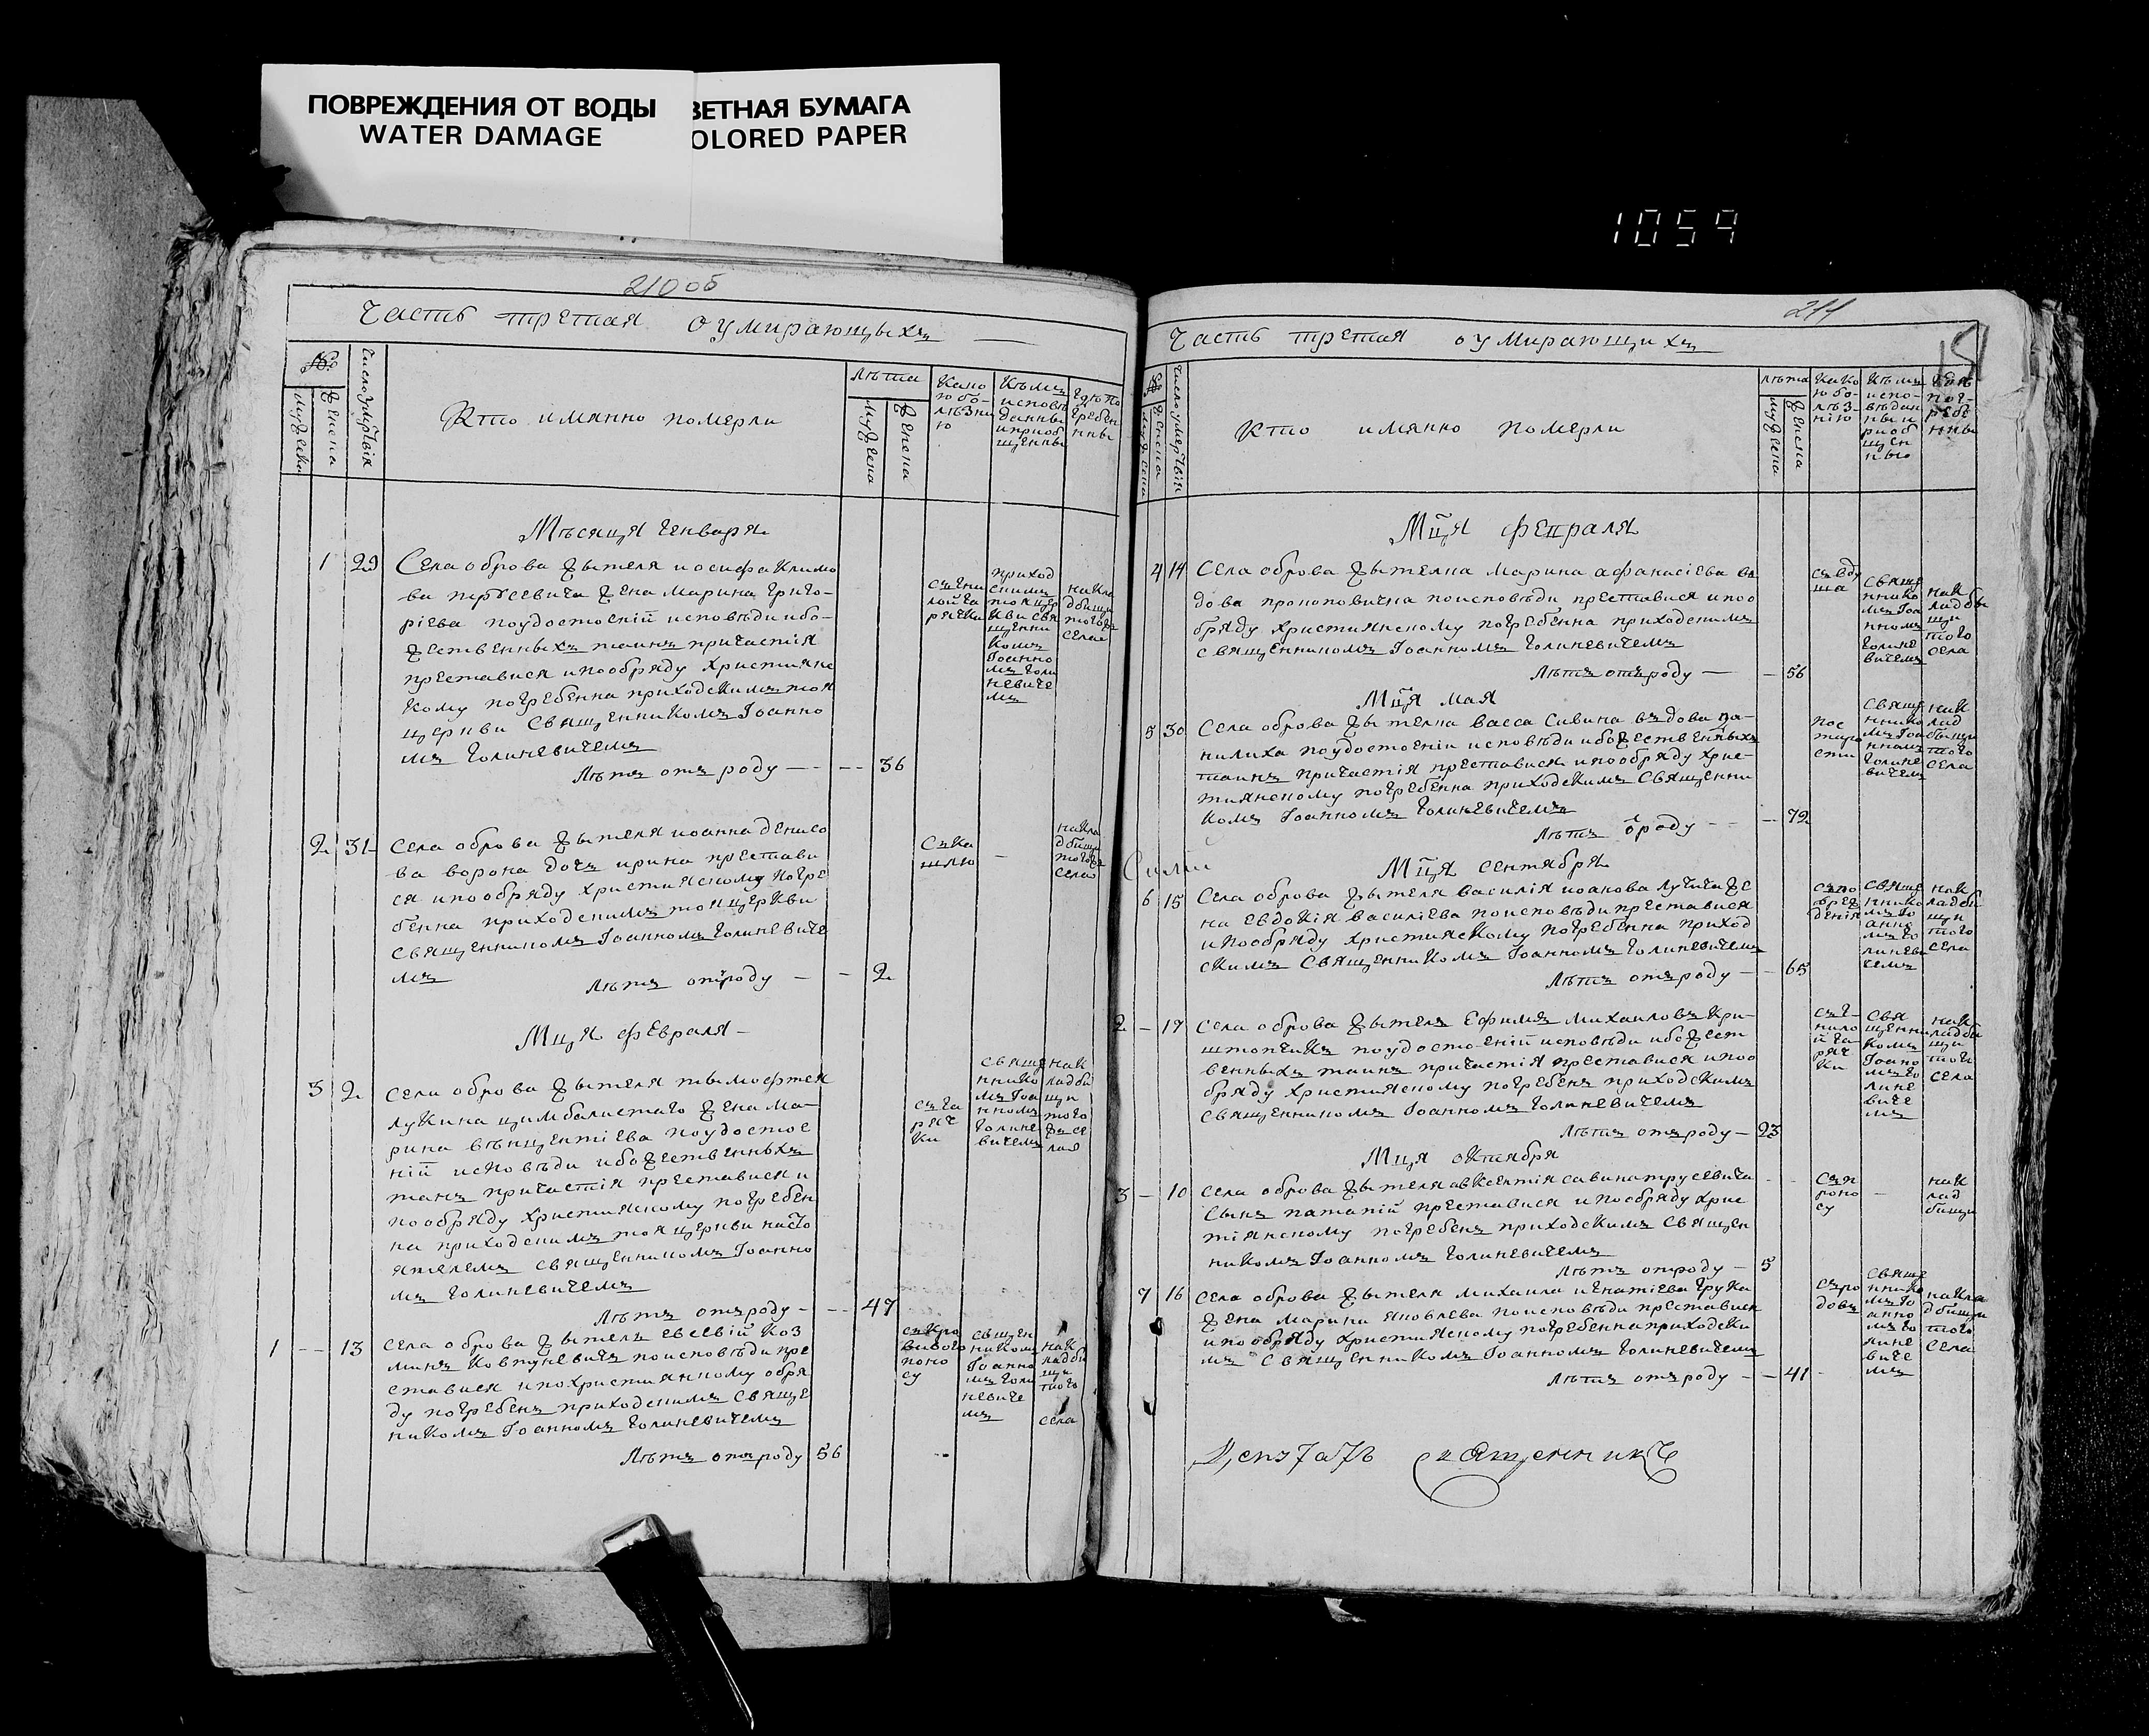 ПОВРЕЖДЕНИЯ ОТ ВОДЫ
WATER DAMAGE
ВЕТНАЯ БУМАГА
OLORED PAPER
1059
210об
Часть третая о умирающыхъ
№
Мужеска
Женска
Число умертвія
Кто имянно померли
Лѣта
Мужеска
Женска
Како
ю бо-
лѣзни
ю
Кѣмъ
исповѣ
данны
и приоб
щенны
Гдѣ по
гребен
нны
Мѣсяця Генваря
1 29 Села оброва жытеля иосифа Климо
ва трусевича жена Марина Григо-
рієва поудостоєній исповѣди ибо-
жественныхъ таинъ причастія
преставися ипообряду Християнс
кому погребенна приходскимъ тоя
церкви Священникомъ Іоанно
мъ Голиневичемъ
Лѣтъ отъ роду — — 36
приход
скимъ
тоя цер
кви свя
щенни
комъ
Іоанно
мъ Голи
невиче
мъ
на Кла
дбищи
тогожъ
села
2 31 Села оброва жытеля иоанна денисо
ва ворона дочь ирина престави
ся ипообряду християскому погре
бенна приходскимъ тоя церкви
священникомъ Іоанномъ Голиневиче
мъ
Лѣтъ отъ роду — — 2
Съ Ка
шлю
—
на Кла
дбищи
тогожъ
села
Мця февраля -
3 2 Села оброва жытеля тымофтея
лукина цимбалистаго жена Ма-
рина вѣнцентієва поудостоє
ній исповѣди ибожественныхъ
танъ причастія преставися и
пообряду християскому погребен
на приходскимъ тоя церкви насто
ятелемъ священникомъ Іоанно
мъ Голиневичемъ
Лѣтъ отъ роду - — 47
съ га
ряч
ки
Священ
нико
мъ Іоа
нномъ
Голине
вичемъ
на К
ладби
щи
того
жъ се
ла
1 — 13 Села оброва жытель евсевій Коз
минъ Ковтуневичъ поисповѣди пре
ставися ипохристиянному обря
ду погребенъ приходскимъ Свяще
никомъ Іоанномъ Голиневичемъ
Лѣтъ отъ роду 56
съ Кро
вавого
поно
су
сщен
никомъ
Іоанно
мъ Голи
невиче
мъ
на К
ладби
щи
того
села
211
Часть третая о умирающихъ
№
Мужеска
Женска
Число умертвій
Кто имянно померли
Лѣта
Мужеска
Женска
Како
ю бо-
лѣз-
нію
Кѣмъ
испо-
вѣдан
ны и
риоб
щен
ны
Гдѣ
пог-
ребе
нны
Мця февраля
4 14 Села оброва жытелка Марина афанасієва въ
дова прокоповична поисповѣди преставися ипоо
бряду християнскому погребенна приходскимъ
священникомъ Іоанномъ Голиневичемъ
Лѣтъ отъ роду — — 56
Священ
нико
мъ Іоа
нномъ
Голине
вичемъ
на К
ладби
щи
того
села
Мця мая
5 30 Села оброва жытелка васса Савина въдова
поудостоєніи исповѣди ибожественныхъ
таинъ причастія преставися ипообряду хрис-
тиянскому погребенна приходскимъ Священни
комъ Іоанномъ Голиневичемъ
Лѣтъ ѿроду -- — 72
пос
таро
сти
Священ
нико
мъ Іоа
нномъ
Голине
вичемъ
на К
лад
бищи
того
села
Мця сентября
6 15 Села оброва жытеля василія иоанова лучича же
на Евдокія василієва поисповѣди преставися
ипообряду християскому погребенна приход
скимъ Священникомъ Іоанномъ Голиневичемъ
Лѣтъ отъ роду — — 65
Свяще
ннико
мъ Іо
анно
мъ Го
линеви
чемъ
на К
ладби
щи
того
села
2 — 17 Села оброва жытель Ефимъ Михаиловъ Кри-
штопчикъ поудостоєній исповѣди ибожест
венныхъ таинъ причастія преставися ипоо
бряду християскому погребенъ приходскимъ
священникомъ Іоанномъ Голиневичемъ
Лѣтъ отъ роду — 23
съ г-
нило
й га
ряч
ки
Свя
щенни
комъ
Іоано
мъ Го
лине
виче
мъ
на К
ладби
щи
того
села
Мця октября
3 — 10 Села оброва жытеля авксентія савина трусевича
сынъ патапій преставися ипообряду хрис
тіянскому погребенъ приходскимъ Священ
никомъ Іоанномъ Голиневичемъ
Лѣтъ отроду — 5
—
на К
лад
бищи
7 16 Села оброва жытеля михаила игнатієва Грука
жена Марина яковлева поисповѣди преставися
ипообряду християскому погребенна приходски
мъ Священникомъ Іоанномъ Голиневичемъ
Лѣтъ отъ роду — — 41
съ ро
довъ
Свяще
ннико
мъ Іо
анно
мъ Го
лине
виче
мъ
на Кла
дбищи
того
села